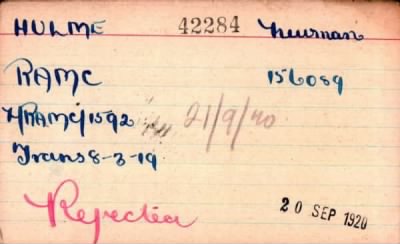 HULME 42284 Newman
RAMC 156089
H/RAMC/1592 21/9/20
Trans 8-3-19
Rejected 20 SEP 1920